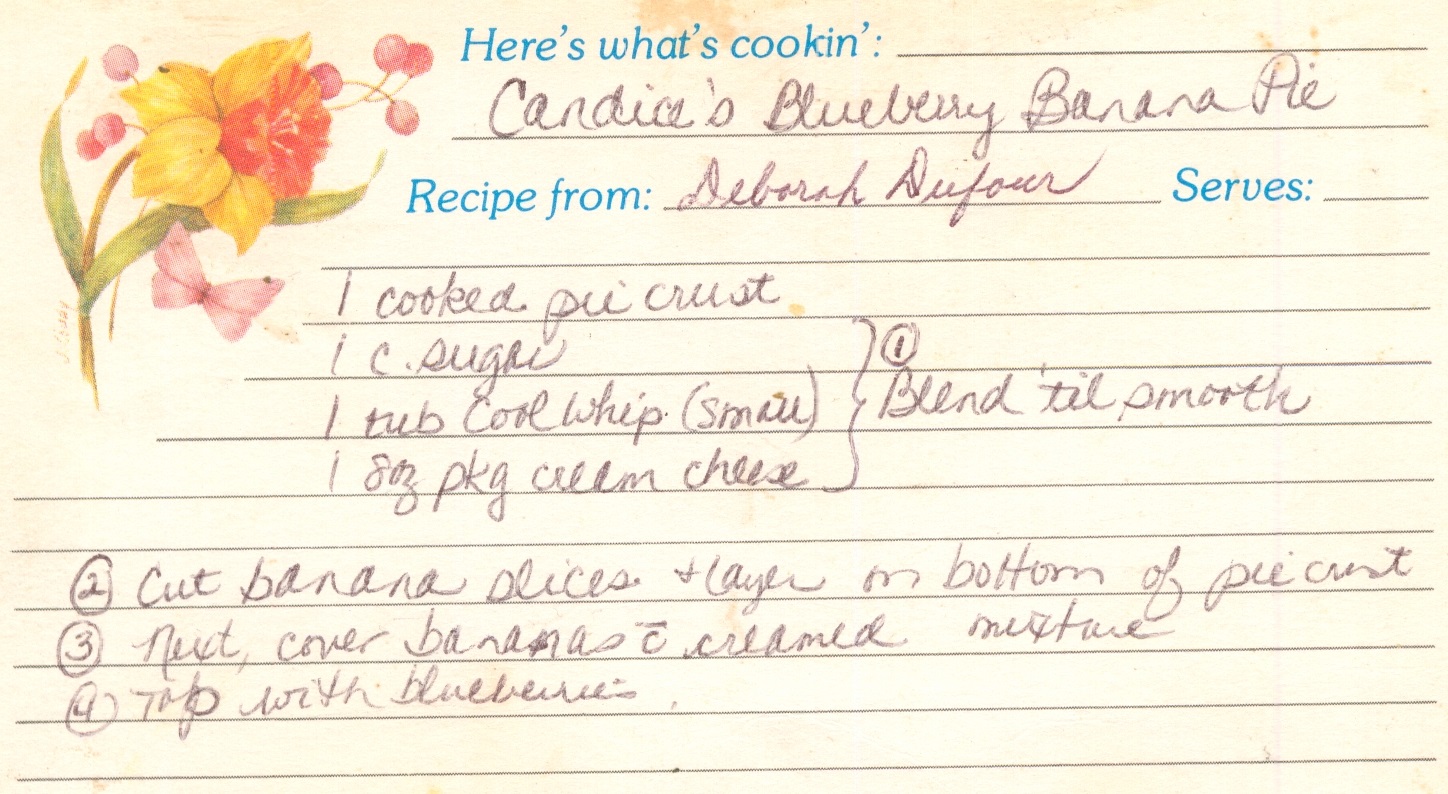 Here's what's cookin':
Candice's Blueberry Banana Pie
Recipe from: Deborah Dufour Serves:
1 cooked pie crust
1 c. sugar
1 tub Cool Whip (small)
1 8oz pkg cream cheese
① Blend 'til smooth
② Cut banana slices + layer on bottom of pie crust
③ Next, cover bananas c̄ creamed mixture
④ Top with blueberries.